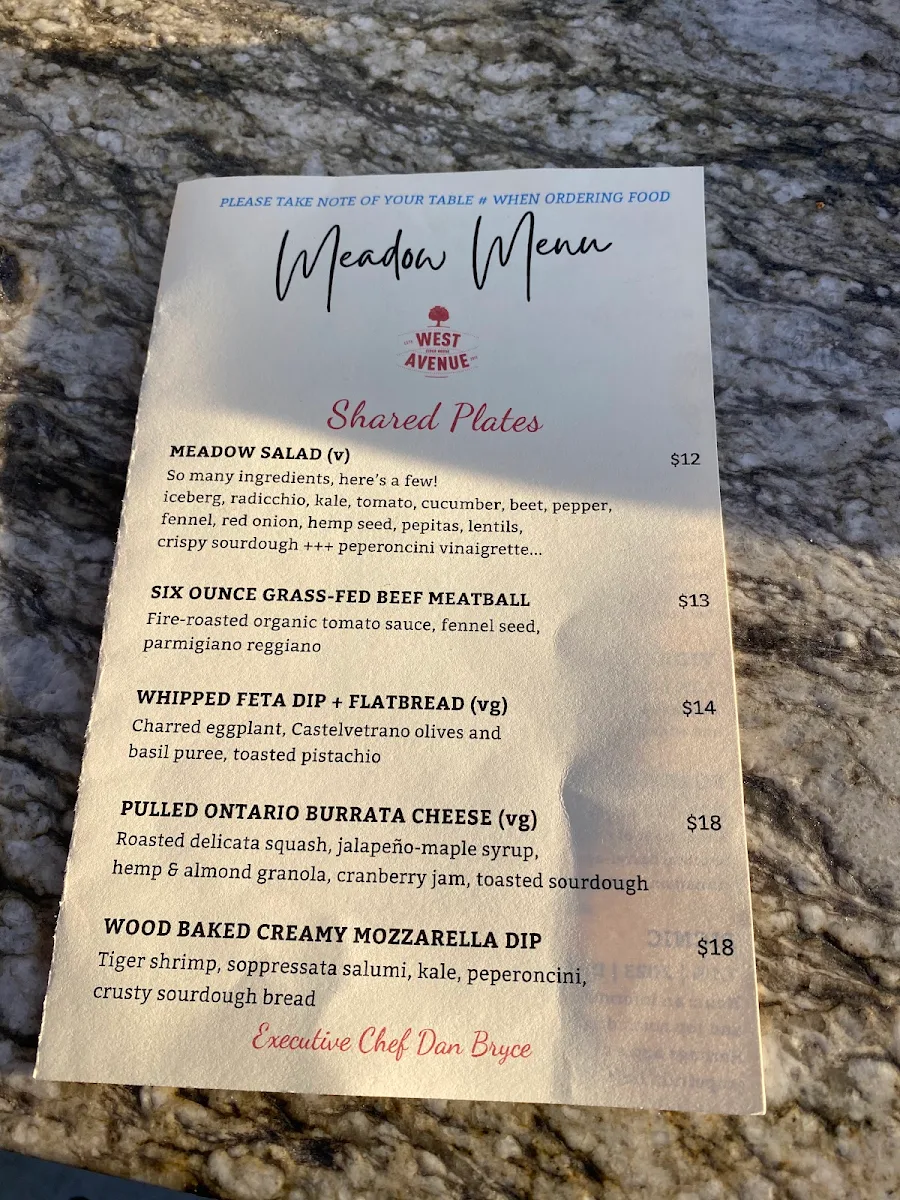 PLEASE TAKE NOTE OF YOUR TABLE # WHEN ORDERING FOOD
Meadow Menu
WEST
AVENUE
Shared Plates
MEADOW SALAD (v) $12
So many ingredients, here's a few!
iceberg, radicchio, kale, tomato, cucumber, beet, pepper,
fennel, red onion, hemp seed, pepitas, lentils,
crispy sourdough +++ peperoncini vinaigrette...
SIX OUNCE GRASS-FED BEEF MEATBALL $13
Fire-roasted organic tomato sauce, fennel seed,
parmigiano reggiano
WHIPPED FETA DIP + FLATBREAD (vg) $14
Charred eggplant, Castelvetrano olives and
basil puree, toasted pistachio
PULLED ONTARIO BURRATA CHEESE (vg) $18
Roasted delicata squash, jalapeño-maple syrup,
hemp & almond granola, cranberry jam, toasted sourdough
WOOD BAKED CREAMY MOZZARELLA DIP $18
Tiger shrimp, soppressata salumi, kale, peperoncini,
crusty sourdough bread
Executive Chef Dan Bryce